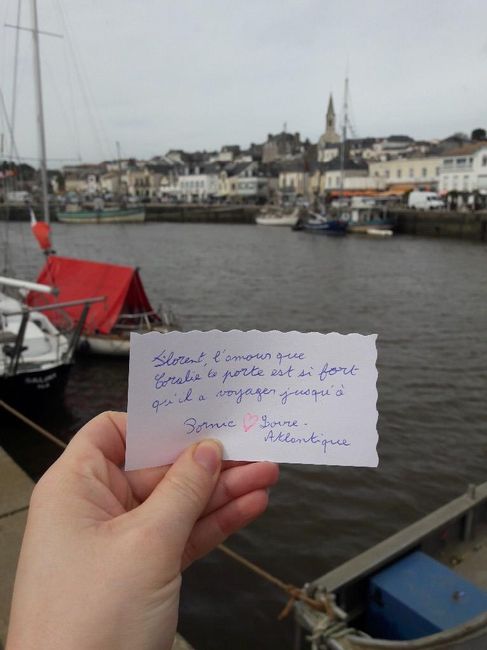 Florent, l'amour que
Coralie te porte est si fort
qu'il a voyager jusqu'à
Pornic ♡ Loire-
Atlantique